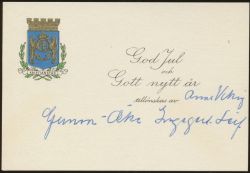 God Jul
och
Gott nytt år
tillönskas av
Gunnar- Åke Ingegerd. Leif